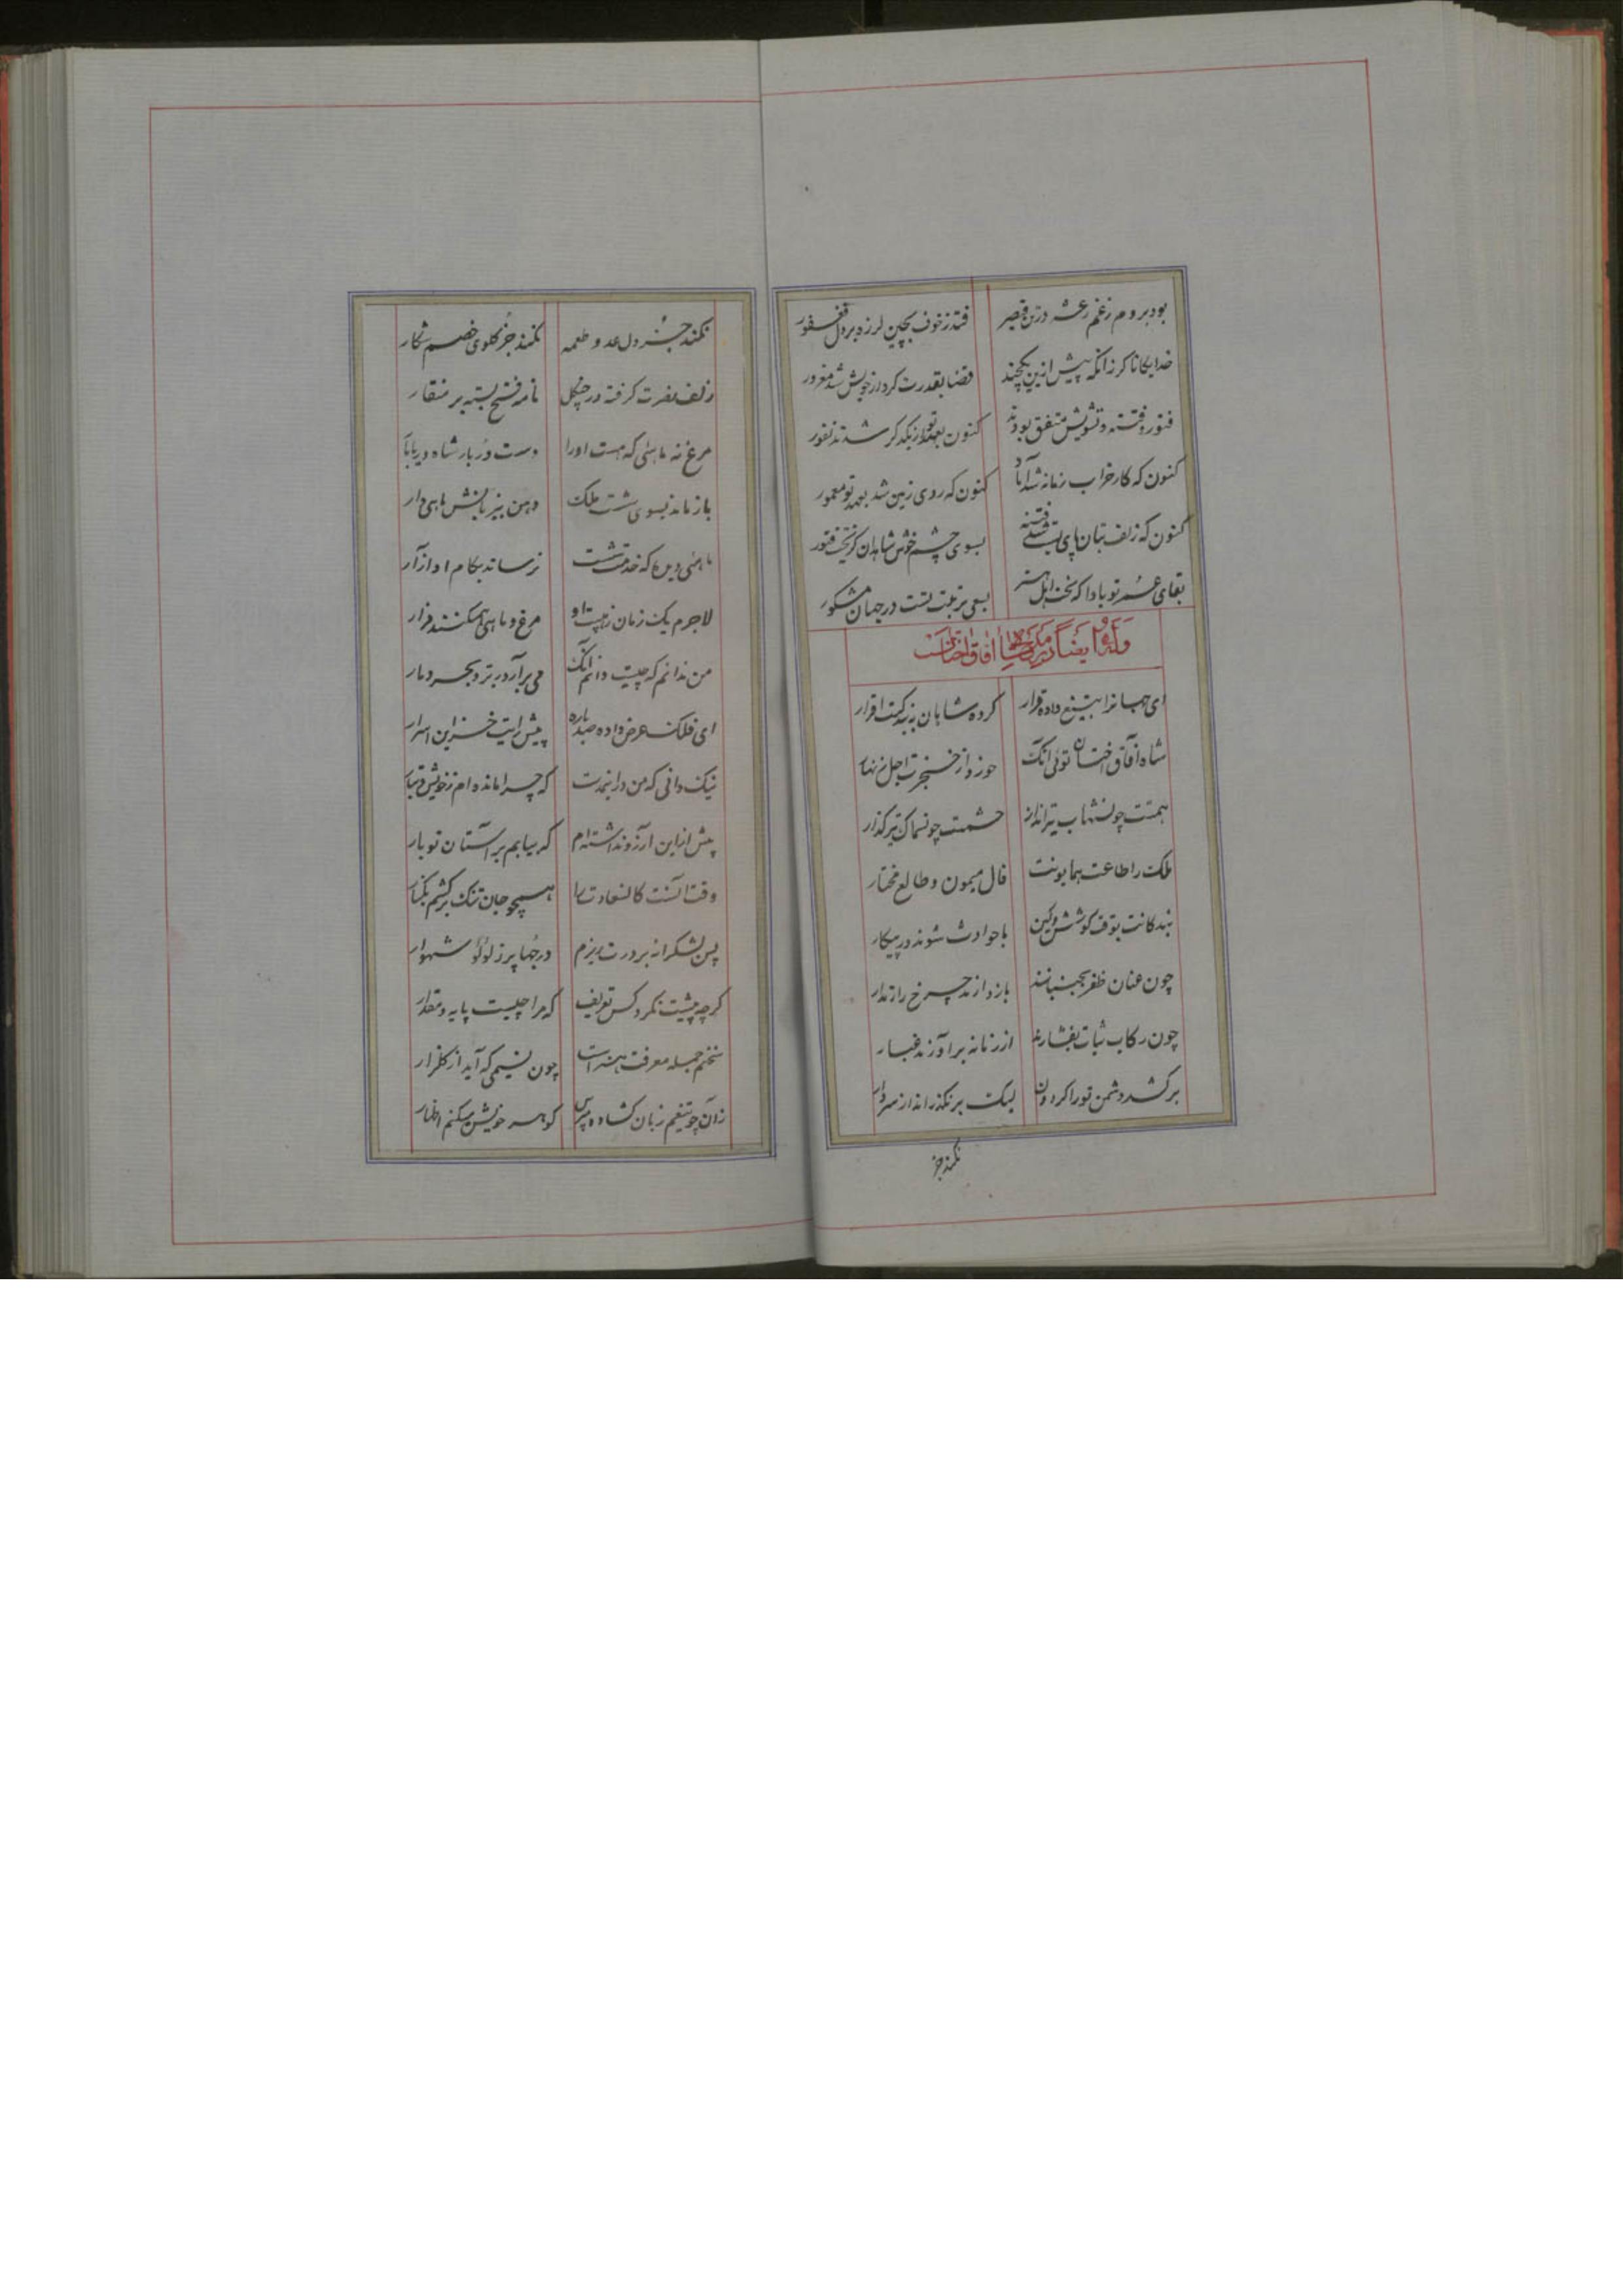 بود بروم ز غم رعشه در تن قیصر فتد ز خوف بچین لرزه بر دل فغفور
خدایگانا کر زانکه پیش ازین یکچند قضا بقدرت کردار خویش شد مغرور
فتور و فتنه و تشویش متفق بودند کنون بعهد تو از یکدکر شدند نفور
کنون که کار خراب زمانه شد آباد کنون که روی زمین شد بعهد تو معمور
کنون که زلف بتان پای بست فتنه بسوی چشم خوش شاهدان کریخت فتور
بقای عمر تو بادا که بخت اهل هنر بسعی تربیت تست در جهان مشکور
وله ایضا در مدح شاه آفاق اختسان
ای جهانرا بتیغ داده قرار کرده شاهان به بندکیت اقرار
شاه آفاق اختسان توئی آنک خورد از خنجرت اجل زنهار
همتت چون شهاب تیرانداز حشمتت چون سماک نیزه کذار
ملک را طاعت همایونت فال میمون و طالع مختار
بندکانت بوقت کوشش و کین با حوادث شوند در پیکار
چون عنان ظفر بجنبانند باز دارند چرخ را ز مدار
چون رکاب ثبات بفشارند از زمانه برآورند غبار
برکشد دشمن تو را کردون لیک بر نکذراند از سر دار
نکند جز
نکند جز دل عدو طعمه نکند جز کلوی خصم شکار
زلف نصرت کرفته در چنکل نامه فتح بسته بر منقار
مرغ نه ماهئی که هست اورا دست دربار شاه دریابار
باز ماند بسوی شست ملک دهن نیز بازش ماهی وار
ماهئی دیده که خدمت شست نرساند بکام او آزار
لاجرم یک زمان ز هیبت او مرغ و ماهی همی کنند فرار
من ندانم که چیست دانم آنک می برآرد ز بر و بحر دمار
ای فلک عرض داده صد باره پیش رایت خزاین اسرار
نیک دانی که من در این مدت که چرا مانده ام ز خویش و تبار
پیش از این آرزو نداشته ام که بیابم بر آستان تو بار
وقت آنست کان سعادت را همچو جان تنک برکشم بکنار
پس بشکرانه بر درت ریزم درجها پر ز لؤلؤ شهوار
کرچه پیشت نکرد کس تعریف که مرا چیست پایه و مقدار
سخنم جمله معرفت هنر است چون نسیمی که آید از کلزار
زان چو تیغم زبان کشاده مپرس کوهر خویش میکنم اظهار